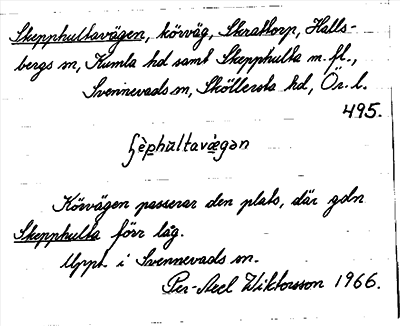 Skepphultavägen, körväg, Skrattorp, Halls-
bergs sn, Kumla hd samt Skepphulta m. fl.,
Svennevads sn, Sköllersta hd, Ör. l.
495.
Körvägen passerar den plats, där gdn
Skepphulta förr låg.
Uppt. i Svennevads sn.
Per-Axel Wiktorsson 1966.